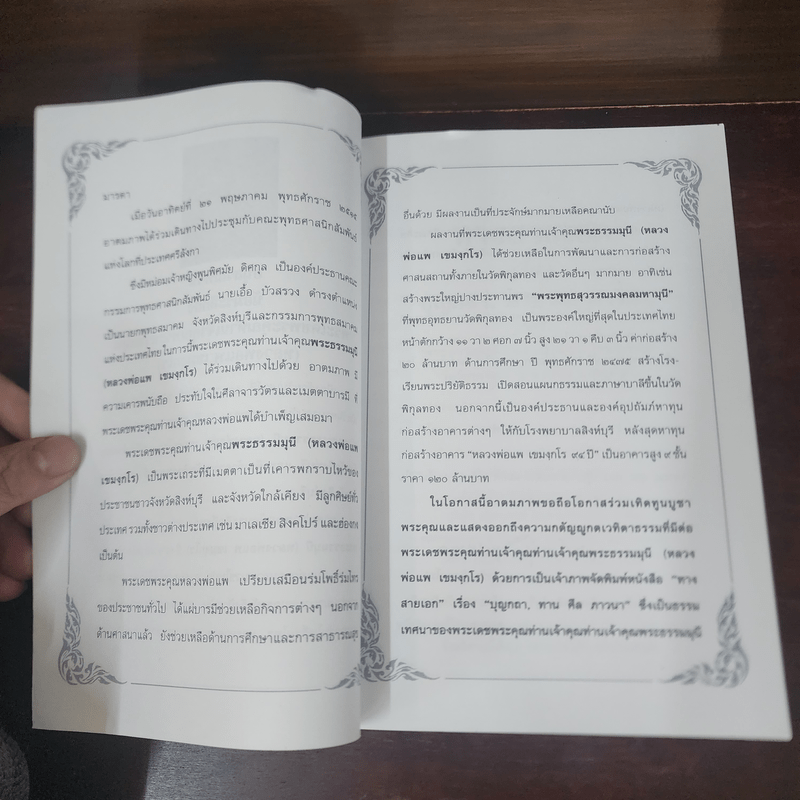 มารดา
เมื่อวันอาทิตย์ที่ ๒๑ พฤษภาคม พุทธศักราช ๒๕๑๕
อาตมภาพได้ร่วมเดินทางไปประชุมกับคณะพุทธศาสนิกสัมพันธ์
แห่งโลกที่ประเทศศรีลังกา
ซึ่งมีหม่อมเจ้าหญิงพูนพิศมัย ดิศกุล เป็นองค์ประธานคณะ
กรรมการพุทธศาสนิกสัมพันธ์ นายเอื้อ บัวสรวง ดำรงตำแหน่ง
เป็นนายกพุทธสมาคม จังหวัดสิงห์บุรีและกรรมการพุทธสมาคม
แห่งประเทศไทยในการนี้พระเดชพระคุณท่านเจ้าคุณพระธรรมมุนี
(หลวงพ่อแพ เขมงฺกโร) ได้ร่วมเดินทางไปด้วย อาตมภาพ
ความเคารพนับถือ ประทับใจในศีลาจารวัตรและเมตตาบารมี ที่
พระเดชพระคุณท่านเจ้าคุณหลวงพ่อแพได้บำเพ็ญเสมอมา
พระเดชพระคุณท่านเจ้าคุณพระธรรมมุนี (หลวงพ่อแพ
เขมงฺกโร) เป็นพระเถระที่มีเมตตาเป็นที่เคารพกราบไหว้ของ
ประชาชนชาวจังหวัดสิงห์บุรี และจังหวัดใกล้เคียง มีลูกศิษย์ทั่ว
ประเทศ รวมทั้งชาวต่างประเทศ เช่น มาเลเซีย สิงคโปร์ และฮ่องกง
เป็นต้น
พระเดชพระคุณหลวงพ่อแพ เปรียบเสมือนร่มโพธิ์ร่มไทร
ของประชาชนทั่วไป ได้แผ่บารมีช่วยเหลือกิจการต่างๆ นอกจาก
ด้านศาสนาแล้ว ยังช่วยเหลือด้านการศึกษาและการสาธารณสุข
อื่นด้วย มีผลงานเป็นที่ประจักษ์มากมายเหลือคณานับ
ผลงานที่พระเดชพระคุณท่านเจ้าคุณพระธรรมมุนี (หลวง
พ่อแพ เขมงฺกโร) ได้ช่วยเหลือในการพัฒนาและการก่อสร้าง
ศาสนสถานทั้งภายในวัดพิกุลทอง และวัดอื่นๆ มากมาย อาทิเช่น
สร้างพระใหญ่ปางประทานพร "พระพุทธสุวรรณมงคลมหามุนี"
ที่พุทธอุทยานวัดพิกุลทอง เป็นพระองค์ใหญ่ที่สุดในประเทศไทย
หน้าตักกว้าง ๑๑ วา ๒ ศอก ๗ นิ้ว สูง ๒๑ วา ๑ คืบ ๓ นิ้ว ค่าก่อสร้าง
๒๐ ล้านบาท ด้านการศึกษา ปี พุทธศักราช ๒๔๗๕ สร้างโรง-
เรียนพระปริยัติธรรม เปิดสอนแผนกธรรมและภาษาบาลีขึ้นในวัด
พิกุลทอง นอกจากนี้เป็นองค์ประธานและองค์อุปถัมภ์หาทุน
ก่อสร้างอาคารต่างๆ ให้กับโรงพยาบาลสิงห์บุรี หลังสุดหาทุน
ก่อสร้างอาคาร "หลวงพ่อแพ เขมงฺกโร ๙๔ ปี" เป็นอาคารสูง ๙ ชั้น
ราคา ๑๒๐ ล้านบาท
ในโอกาสนี้อาตมภาพขอถือโอกาสร่วมเทิดทูนบูชา
พระคุณและแสดงออกถึงความกตัญญูกตเวทิตาธรรมที่มีต่อ
พระเดชพระคุณท่านเจ้าคุณท่านเจ้าคุณพระธรรมมุนี (หลวง
พ่อแพ เขมงฺกโร) ด้วยการเป็นเจ้าภาพจัดพิมพ์หนังสือ "ทาง
สายเอก" เรื่อง "บุญกถา, ทาน ศีล ภาวนา" ซึ่งเป็นธรรม
เทศนาของพระเดชพระคุณท่านเจ้าคุณท่านเจ้าคุณพระธรรมมุนี